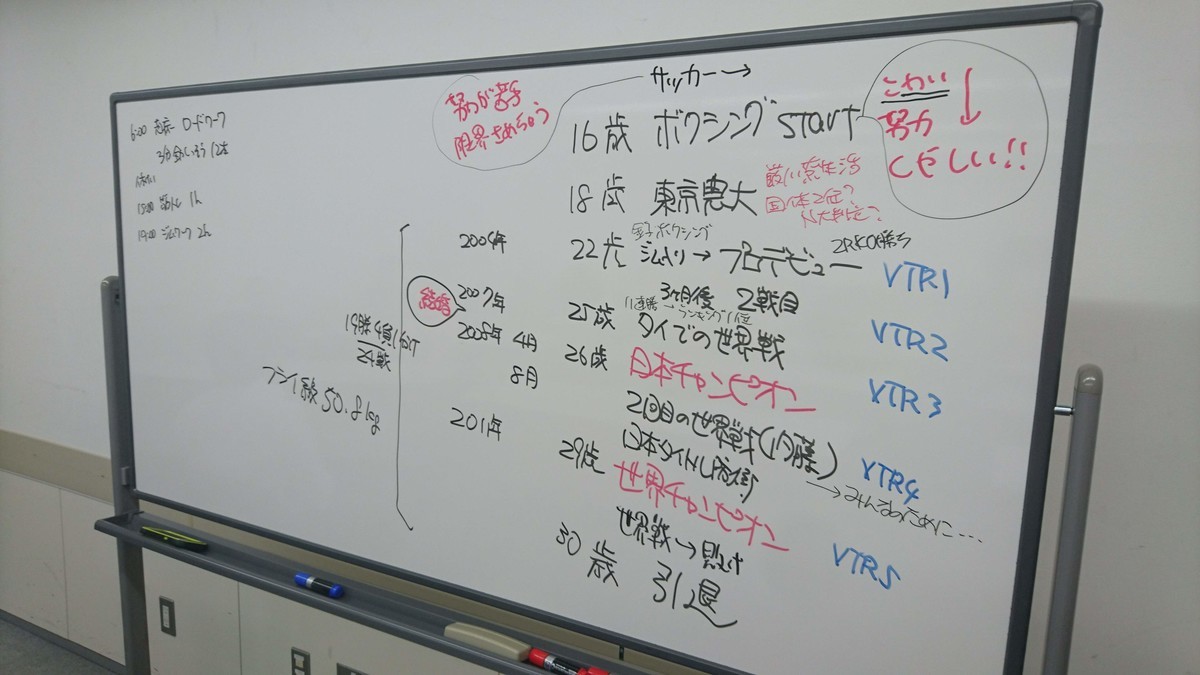 6:00 起床 ロードワーク
15:00 1h
19:00 ジムワーク 2h
努力が苦手
限界きめちゃう
サッカー→
16歳 ボクシング START
こわい
努力
くやしい!!
18歳 東京農大
厳しい寮生活
国体2位?
22歳 ジム入り→プロデビュー 2RKO勝ち
金子ボクシング
VTR1
3ヶ月後 2戦目
2007年
結婚
11連勝→ランキング1位
25歳 タイでの世界戦
VTR2
2008年 4月
26歳 日本チャンピオン
VTR3
8月
2回目の世界戦(内藤)
日本タイトル防衛
VTR4
→みんなのために…
201年
29歳 世界チャンピオン
世界戦→負け
VTR5
30歳 引退
19勝4負1分け
24戦
フライ級 50.8kg